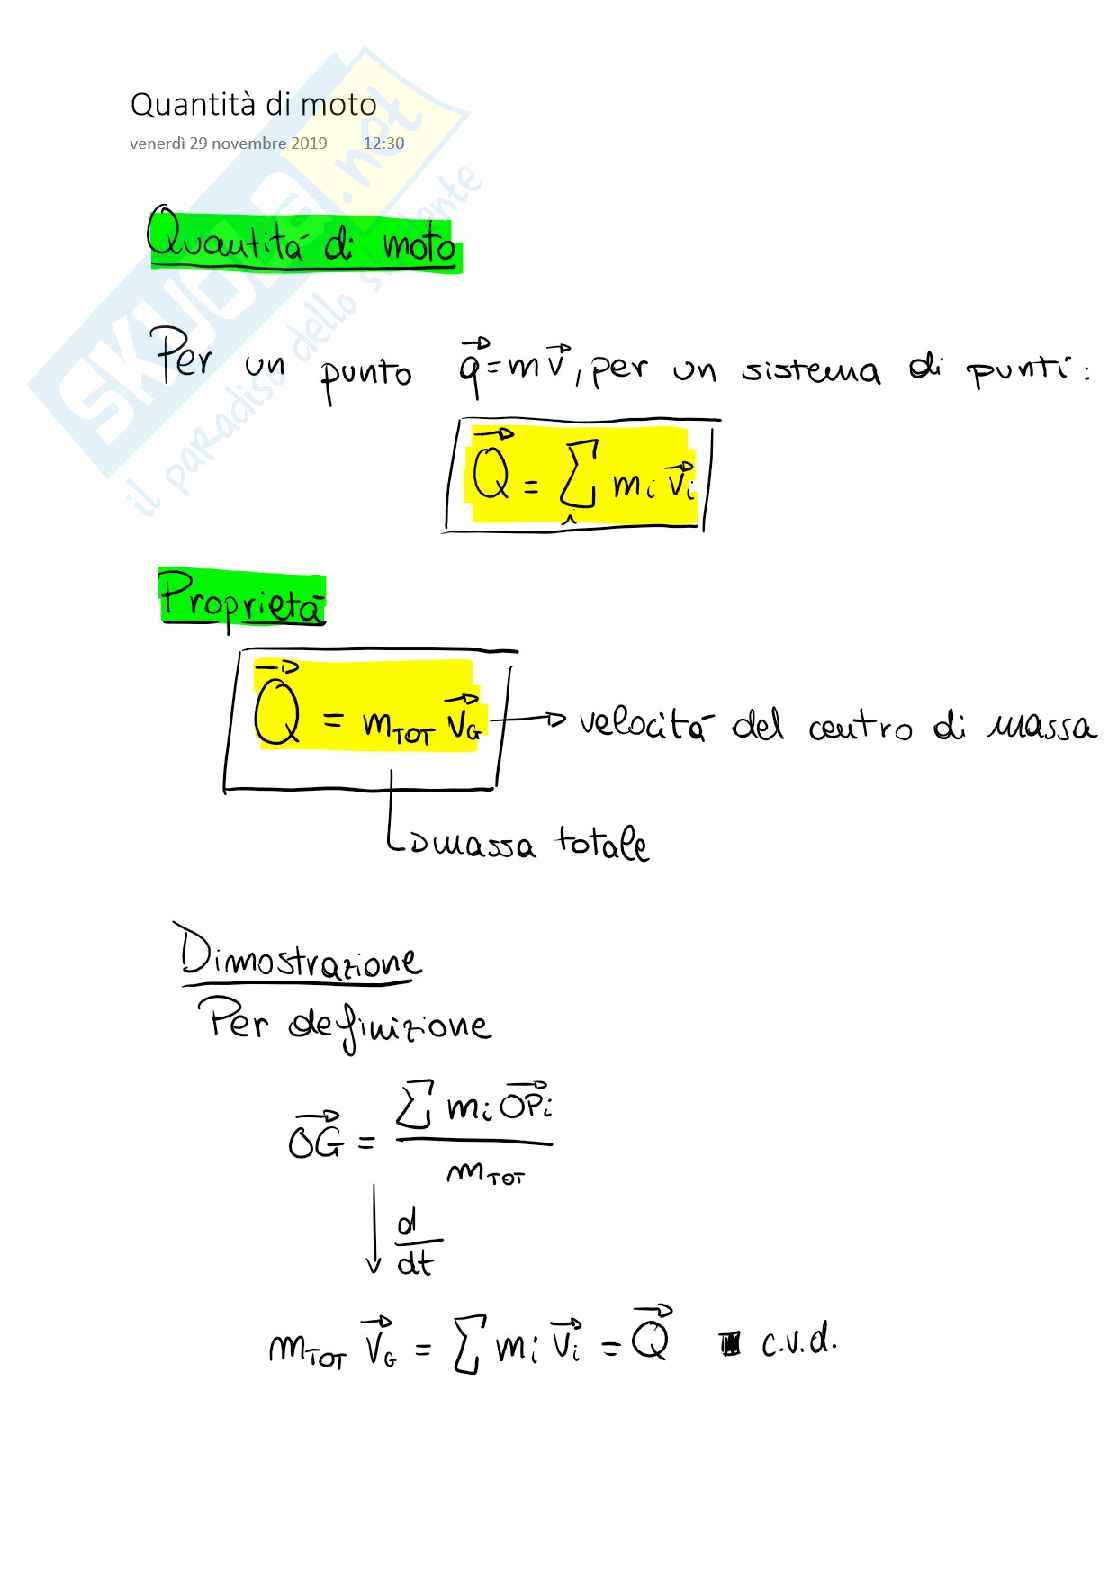 Quantità di moto
venerdì 29 novembre 2019 12:30
SKUOLA.net
il paradiso dello studente
Quantità di moto
Per un punto q⃗ = m v⃗, per un sistema di punti:
Q⃗ = ∑ᵢ mᵢ v⃗ᵢ
Proprietà
Q⃗ = m_TOT v⃗_G → velocità del centro di massa
massa totale
Dimostrazione
Per definizione
OG⃗ = ∑ mᵢ OP⃗ᵢ / m_TOT
↓ d/dt
m_TOT v⃗_G = ∑ mᵢ v⃗ᵢ = Q⃗ ■ c.v.d.